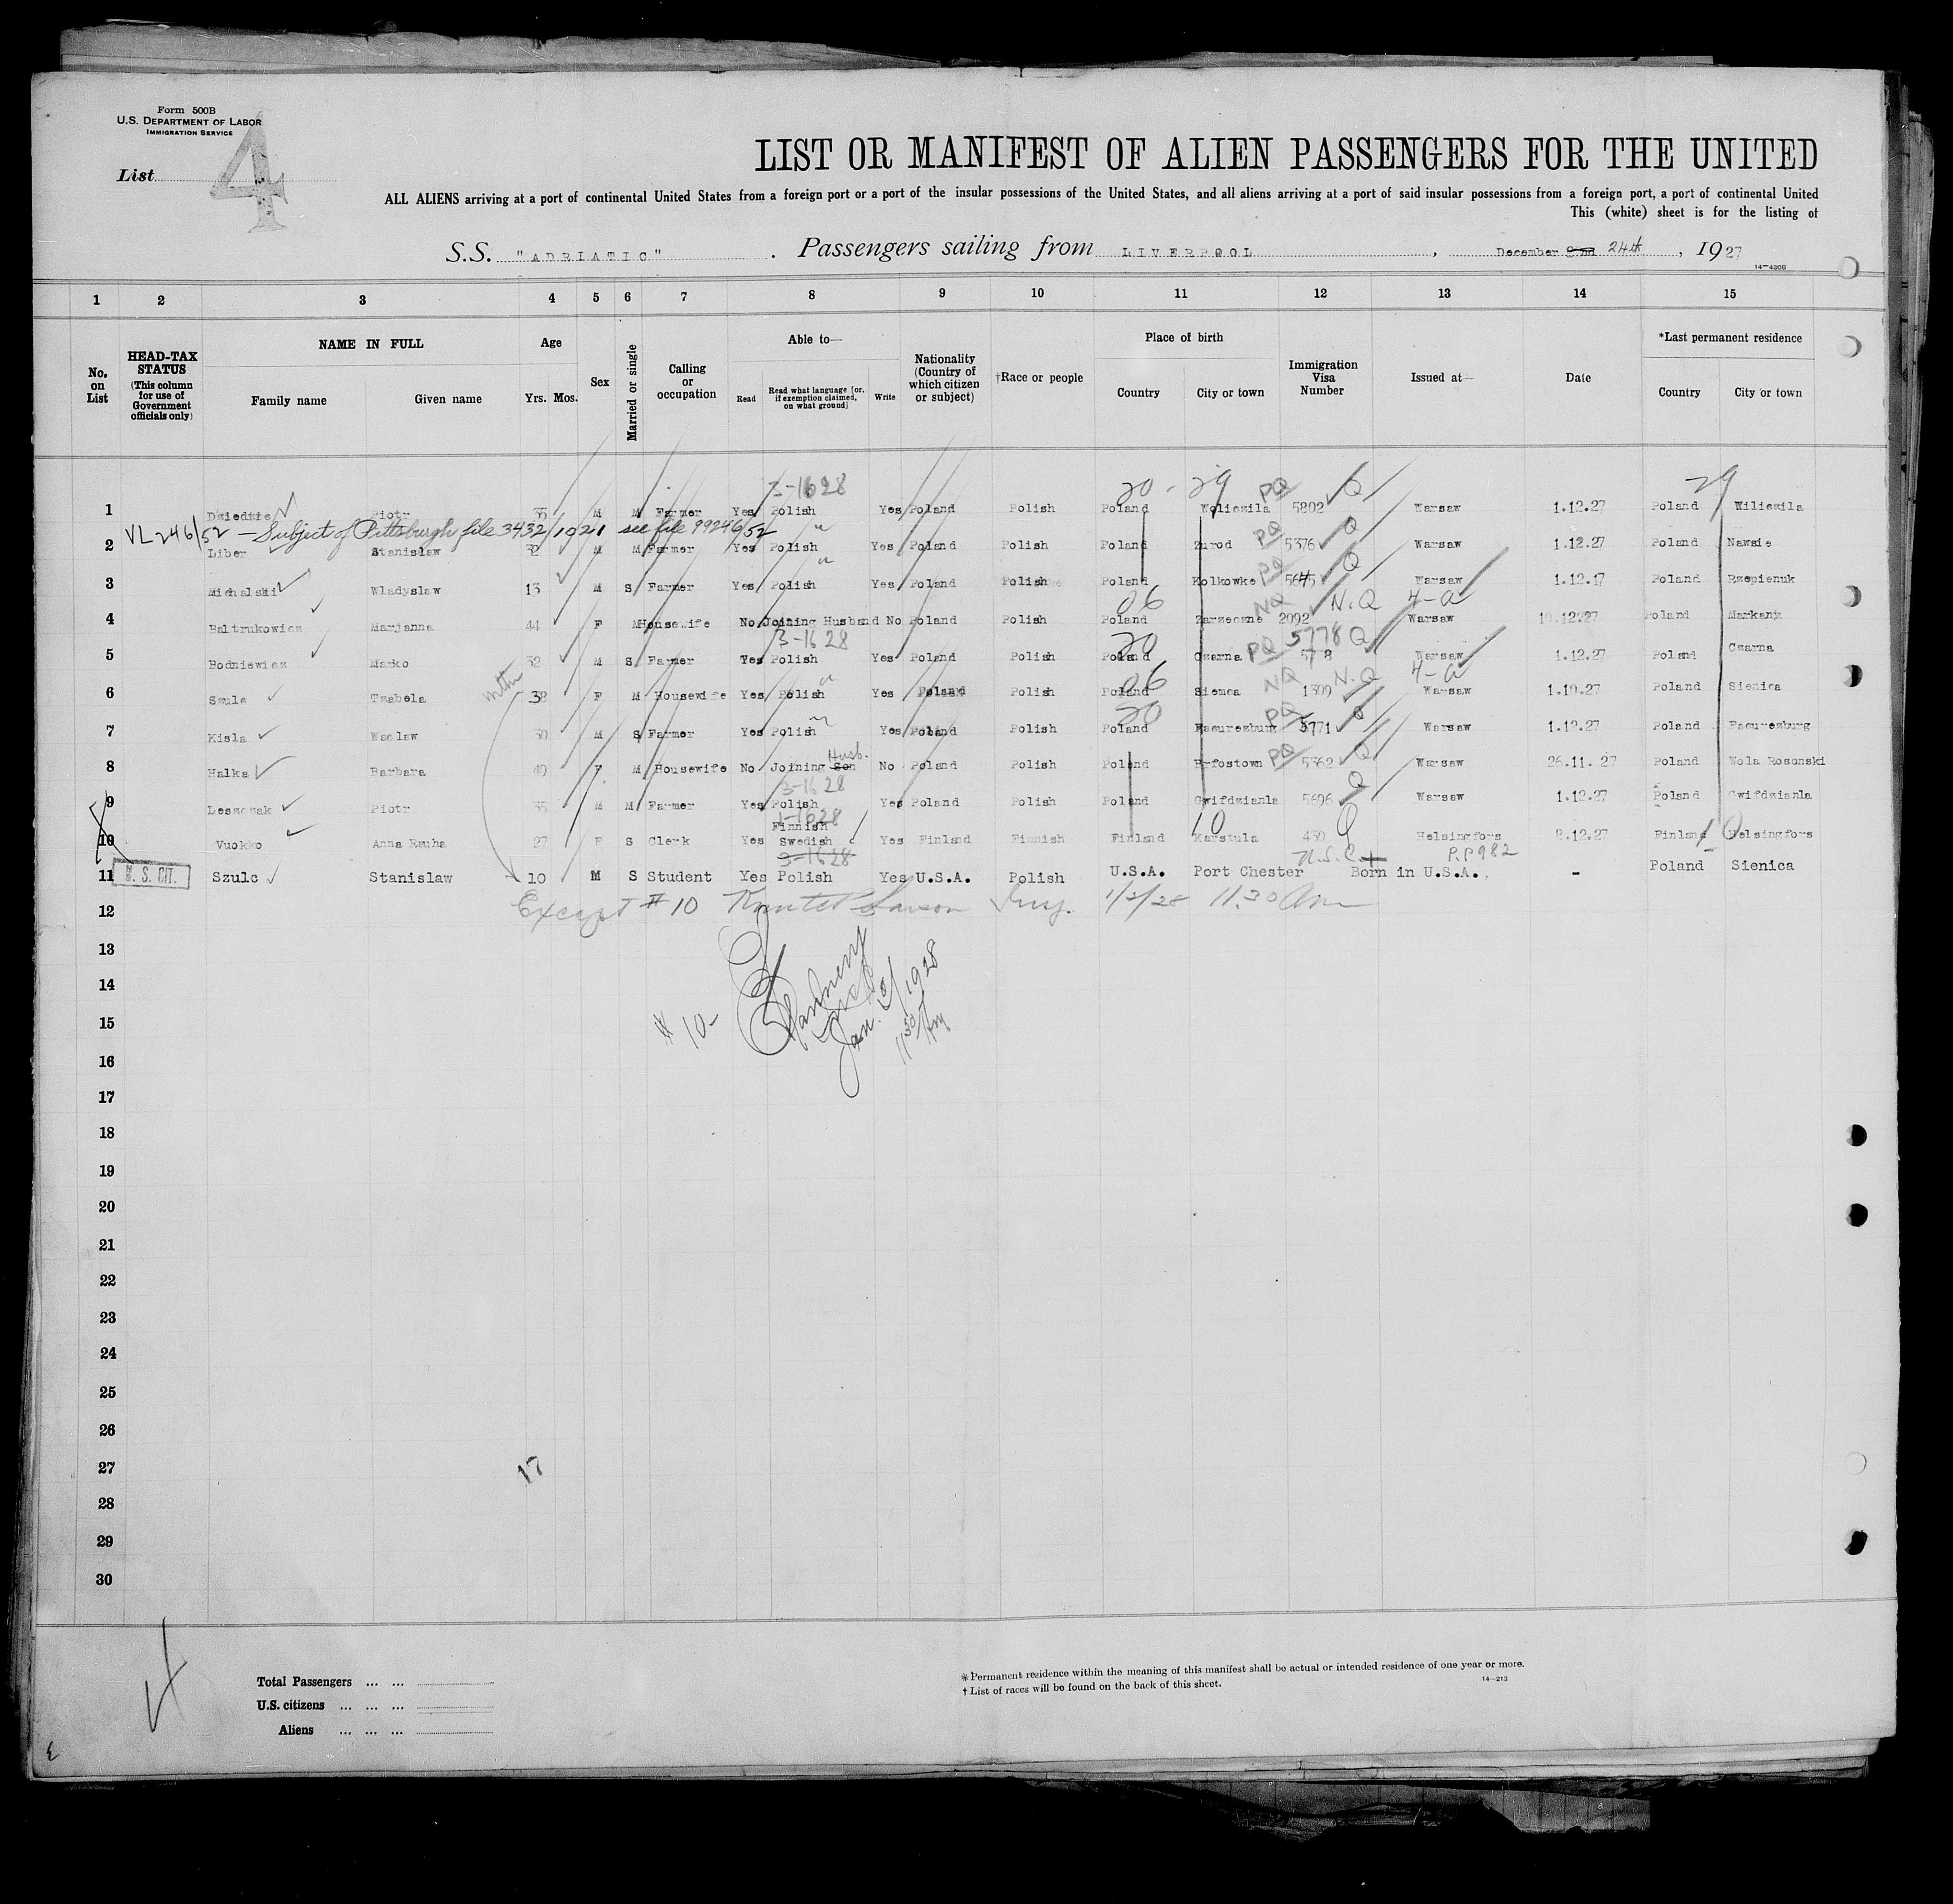 Form 500B
U.S. DEPARTMENT OF LABOR
IMMIGRATION SERVICE
List 4
LIST OR MANIFEST OF ALIEN PASSENGERS FOR THE UNITED
ALL ALIENS arriving at a port of continental United States from a foreign port or a port of the insular possessions of the United States, and all aliens arriving at a port of said insular possessions from a foreign port, a port of continental United
This (white) sheet is for the listing of
S.S. "ADRIATIC". Passengers sailing from LIVERPOOL, December 2nd 24th, 1927
14-4209
1 2 3 4 5 6 7 8 9 10 11 12 13 14 15
No. on List
HEAD-TAX STATUS (This column for use of Government officials only)
NAME IN FULL
Family name Given name
Age
Yrs. Mos.
Sex
Married or single
Calling or occupation
Able to—
Read Read what language [or, if exemption claimed, on what ground] Write
Nationality (Country of which citizen or subject)
†Race or people
Place of birth
Country City or town
Immigration Visa Number
Issued at—
Date
*Last permanent residence
Country City or town
3-1628 20-29 PQ Q 29
1 Piotr 35 M M Farmer Yes Polish Yes Poland Polish Poland 5802 Warsaw 1.12.27 Poland
VL246/52 — Subject of Pittsburgh file 3432/1921 see file 99246/52
2 Liber Stanislaw 32 M M Farmer Yes Polish Yes Poland Polish Poland Zurod PQ 5376 Q Warsaw 1.12.27 Poland Nawsie
3 Michalski Wladyslaw M S Farmer Yes Polish Yes Poland Polish Poland Kolkowke PQ 5645 Q Warsaw 1.12.17 Poland Rzepienuk
06 NQ N.Q 4-a
4 Baltrukowicz Marjanna 44 F M Housewife No Joining Husband No Poland Polish Poland 2092 Warsaw 10.12.27 Poland
3-1628 20 PQ 5778 Q
5 Bodniewicz Marko 32 M S Farmer Yes Polish Yes Poland Polish Poland Czarna Warsaw 1.12.27 Poland Czarna
06 NQ N.Q 4-a
6 Szulc Izabela 32 F M Housewife Yes Polish Yes Poland Polish Poland 1309 Warsaw 1.10.27 Poland Sienica
20 PQ Q
7 Kisla Waclaw 30 M S Farmer Yes Polish Yes Poland Polish Poland 5771 Warsaw 1.12.27 Poland
8 Halka Barbara 49 F M Housewife No Joining Son Husb. No Poland Polish Poland PQ 5362 Q Warsaw 26.11.27 Poland Wola Rosonski
3-1628 Q
9 Leszczak Piotr 35 M M Farmer Yes Polish Yes Poland Polish Poland Gwifdzianla 5696 Warsaw 1.12.27 Poland Gwifdzianla
1-1628
10 Vuokko Anna Rauha 27 F S Clerk Yes Finnish Swedish Yes Finland Finnish Finland Karstula 10 430 Q Helsingfors 8.12.27 Finland 10 Helsingfors
3-1628 U.S.C. P.P982
11 U. S. CIT. Szulc Stanislaw 10 M S Student Yes Polish Yes U.S.A. Polish U.S.A. Port Chester Born in U.S.A. - Poland Sienica
12 Except #10 Insp. 1/2/28 11.30 Am
13
14
15 #10- Jan. 2/1928 11 30 Am
16
17
18
19
20
21
22
23
24
25
26
27 17
28
29
30
Total Passengers ... ...
U.S. citizens ... ... ...
Aliens ... ... ...
* Permanent residence within the meaning of this manifest shall be actual or intended residence of one year or more.
† List of races will be found on the back of this sheet.
14-213